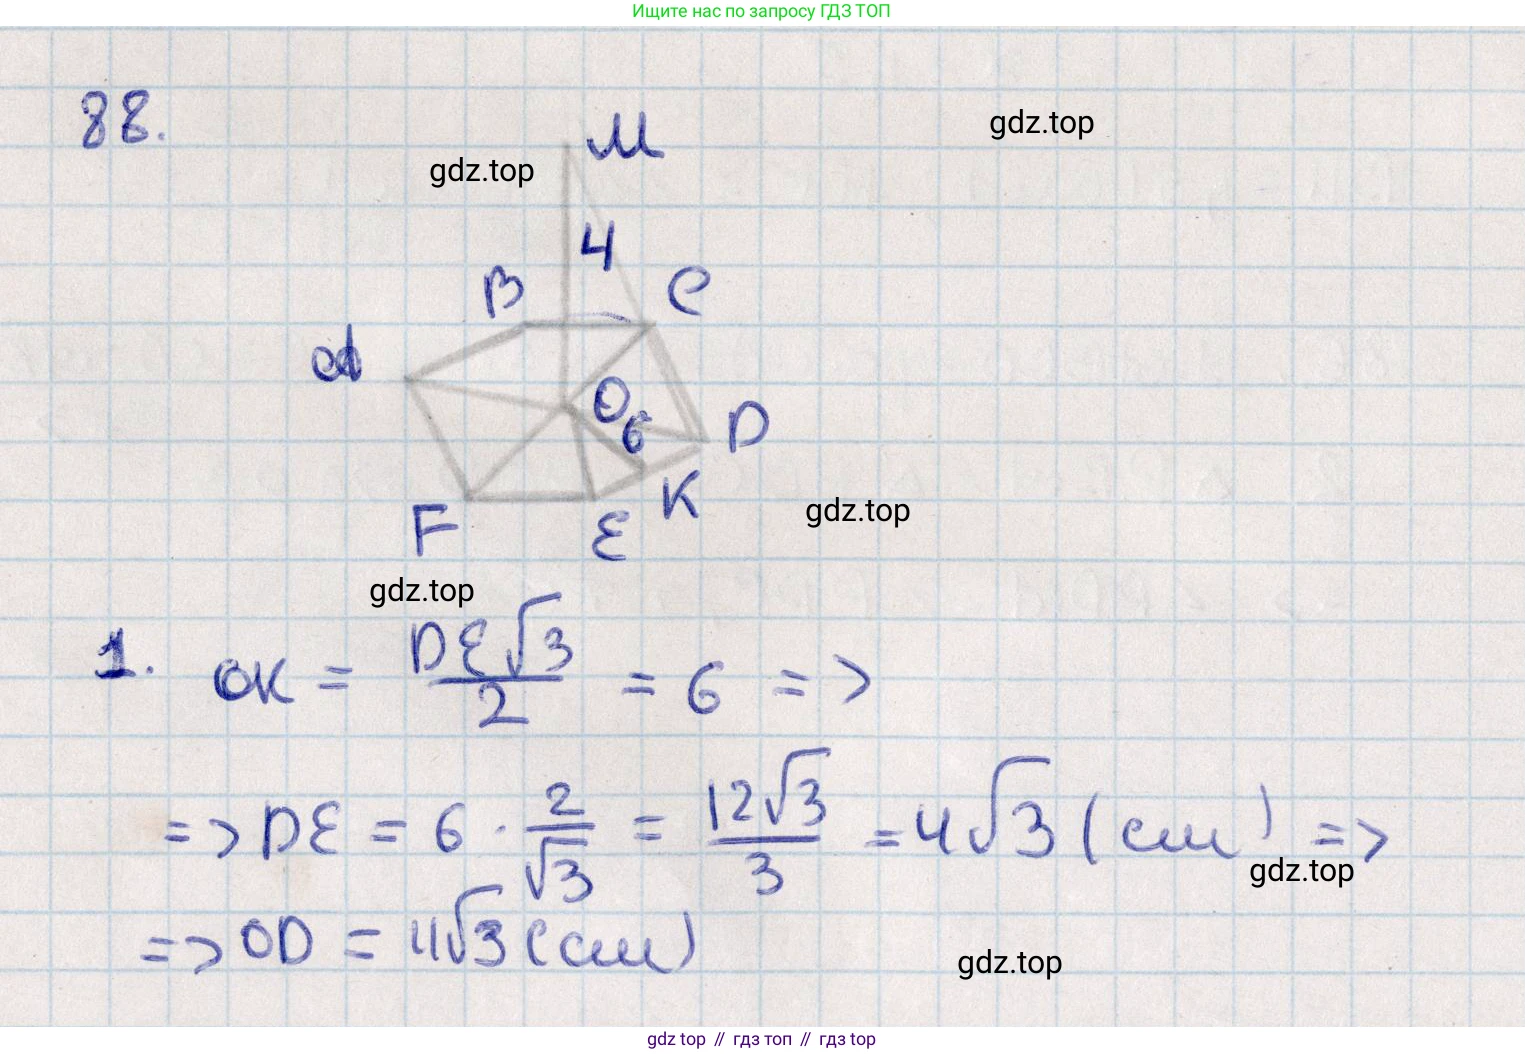 Ищите нас по запросу ГДЗ ТОП
88.
gdz.top
M
gdz.top
4
B
C
A
O
6
D
K
gdz.top
F
E
gdz.top
1. OK = DE√3/2 = 6 =>
=> DE = 6 · 2/√3 = 12√3/3 = 4√3 (см) =>
gdz.top
=> OD = 4√3 (см)
gdz.top
gdz.top // гдз топ // гдз top